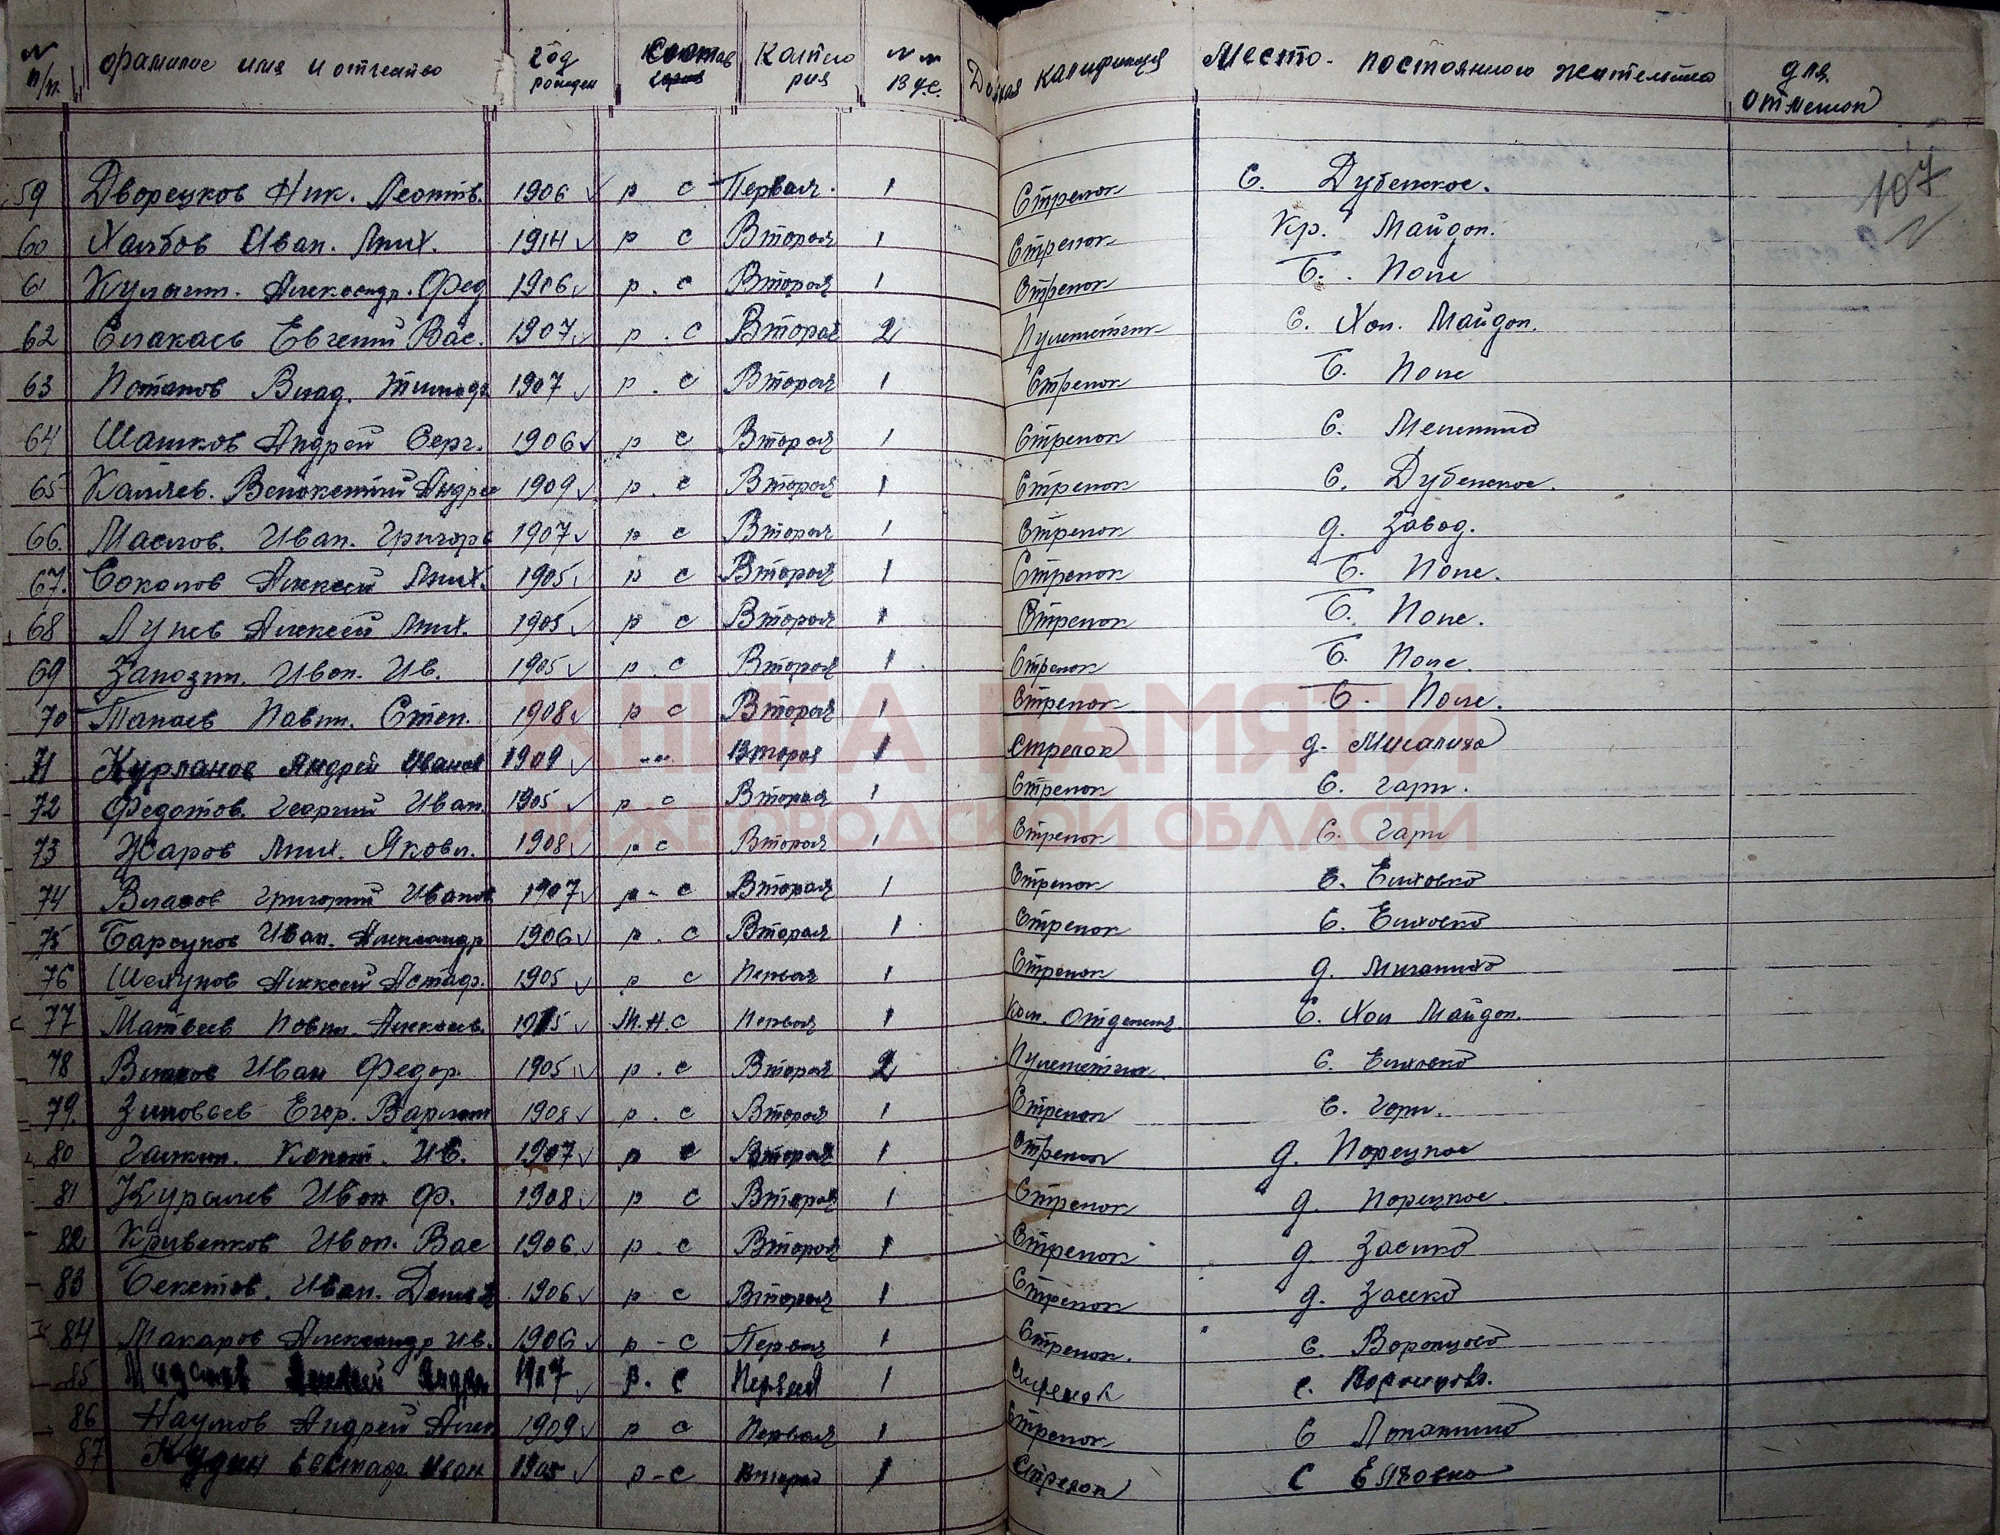 N п/п. фамилие имя и отчество год рожден состав катего рия N N ВУС. Должная калификация Место постоянного жительства для отметок
107
59 Дворецков Ник. Леонтв. 1906 р с Первая 1 Стрелок С. Дубенское.
60 Иван. Мих. 1914 р с Вторая 1 Стрелок Кр. Майдан.
61 Александр. Фед 1906 р. с Вторая 1 Стрелок Б. Поле
62 Евгений Вас. 1907 р. с Вторая 2 Пулеметчик С. Хол. Майдан.
63 Потапов Влад. 1907 р. с Вторая 1 Стрелок Б. Поле
64 Шашков Андрей Серг. 1906 р с Вторая 1 Стрелок С.
65 Каляев. Андрее 1909 р. с Вторая 1 Стрелок С. Дубенское.
66. Маслов. Иван. Григорв 1907 р с Вторая 1 Стрелок д. Завод.
67. Соколов Алексей Мих. 1905 р с Вторая 1 Стрелок Б. Поле.
68 Лунев Алексей Мих. 1905 р с Вторая 1 Стрелок Б. Поле.
69 Иван. Ив. 1905 р. с Вторая 1 Стрелок Б. Поле.
70 Танаев Павил. Степ. 1908 р с Вторая 1 Стрелок Б. Поле.
71 Курланов Андрей Иванов 1909 -"- Вторая 1 Стрелок д.
72 Федотов. Георгий Иван. 1905 р с Вторая 1 Стрелок С. Гари.
73 Жаров Мих. Яковл. 1908 р с Вторая 1 Стрелок С. Гари
74 Власов Григорий Иванов 1907 р - с Вторая 1 Стрелок С. Елховка
75 Барсуков Иван. Александр 1906 р. с Вторая 1 Стрелок С. Елховка
76 Шелупов Алексей Астаф. 1905 р с Первая 1 Стрелок д.
77 Матвеев Павил. Алексеев. 1915 М.Н.С Первая 1 Ком. Отделения С. Хол Майдан.
78 Власов Иван Федор. 1905 р. с Вторая 2 Пулеметчик С. Елховка
79. Зиновьев Егор. 1908 р. с Вторая 1 Стрелок С. Гари.
80 Галкин. Ив. 1907 р с Вторая 1 Стрелок д. Порецкое
81 Иван Ф. 1908 р с Вторая 1 Стрелок д. Порецкое.
82 Кривенков Иван. Вас 1906 р. с Вторая 1 Стрелок д.
83 Бекетов. Иван. 1906 р. с Вторая 1 Стрелок д.
84 Макаров Александр Ив. 1906 р - с Первая 1 Стрелок. с. Воронцово
85 Андре 1907 р. с Первая 1 Стрелок с.
86 Наумов Андрей Алек 1909 р с Первая 1 Стрелок С Лопатино
87 Кудин Евстаф. Иван 1905 р - с Вторая 1 Стрелок С Елховка
КНИГА ПАМЯТИ
НИЖЕГОРОДСКОЙ ОБЛАСТИ